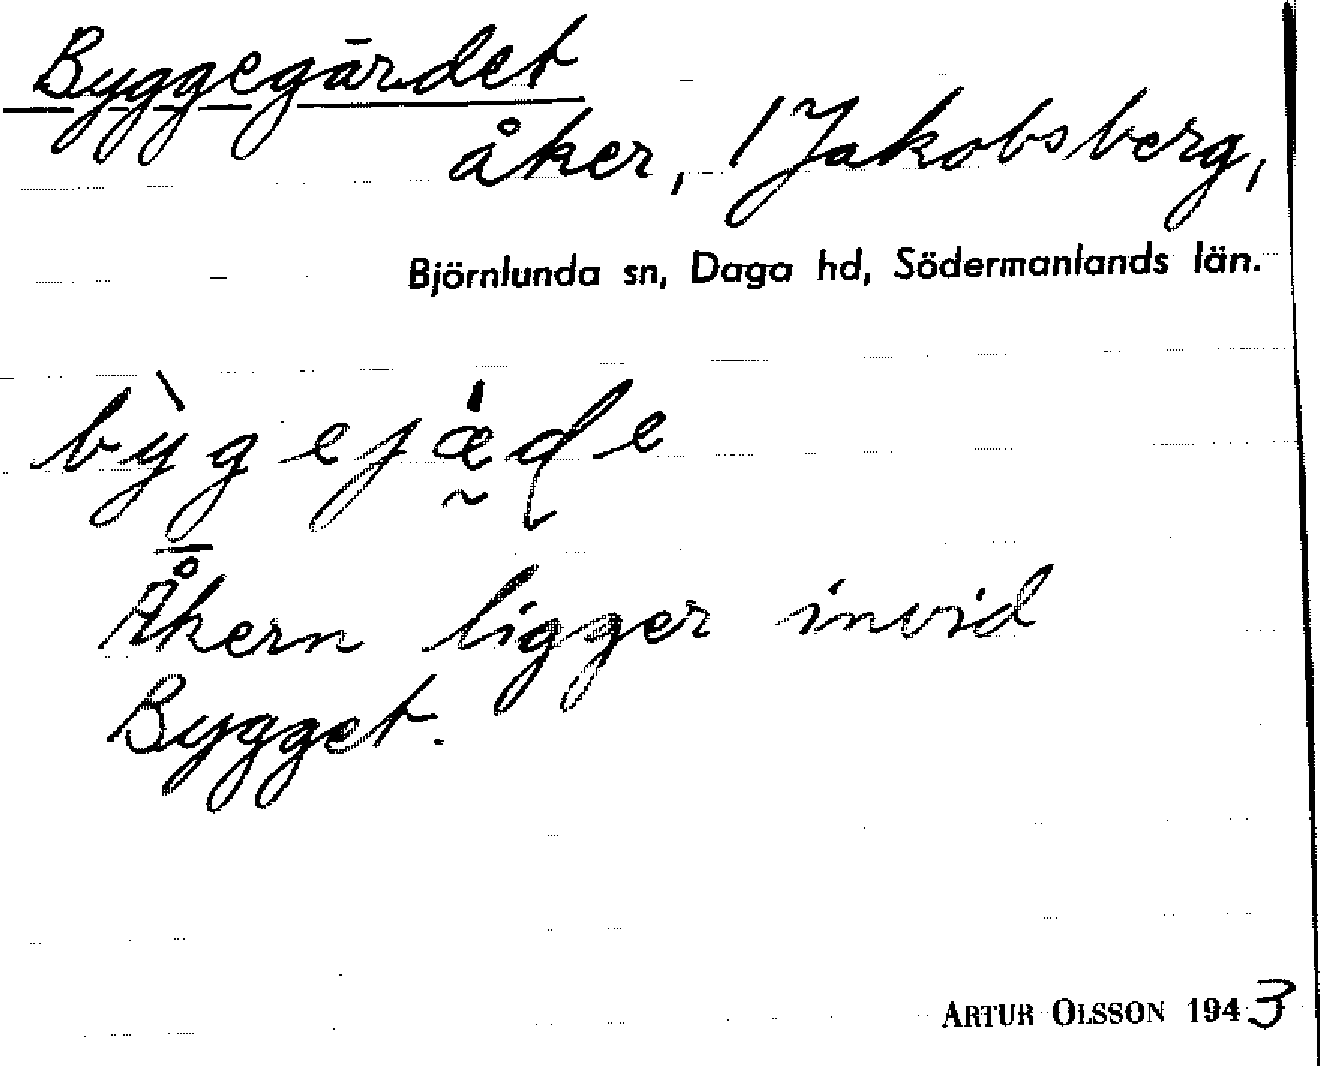 Byggegärdet
åker, 1 Jakobsberg,
Björnlunda sn, Daga hd, Södermanlands län.
bỳgejǽ̰ɖe
Åkern ligger invid
Bygget.
ARTUR OLSSON 1943